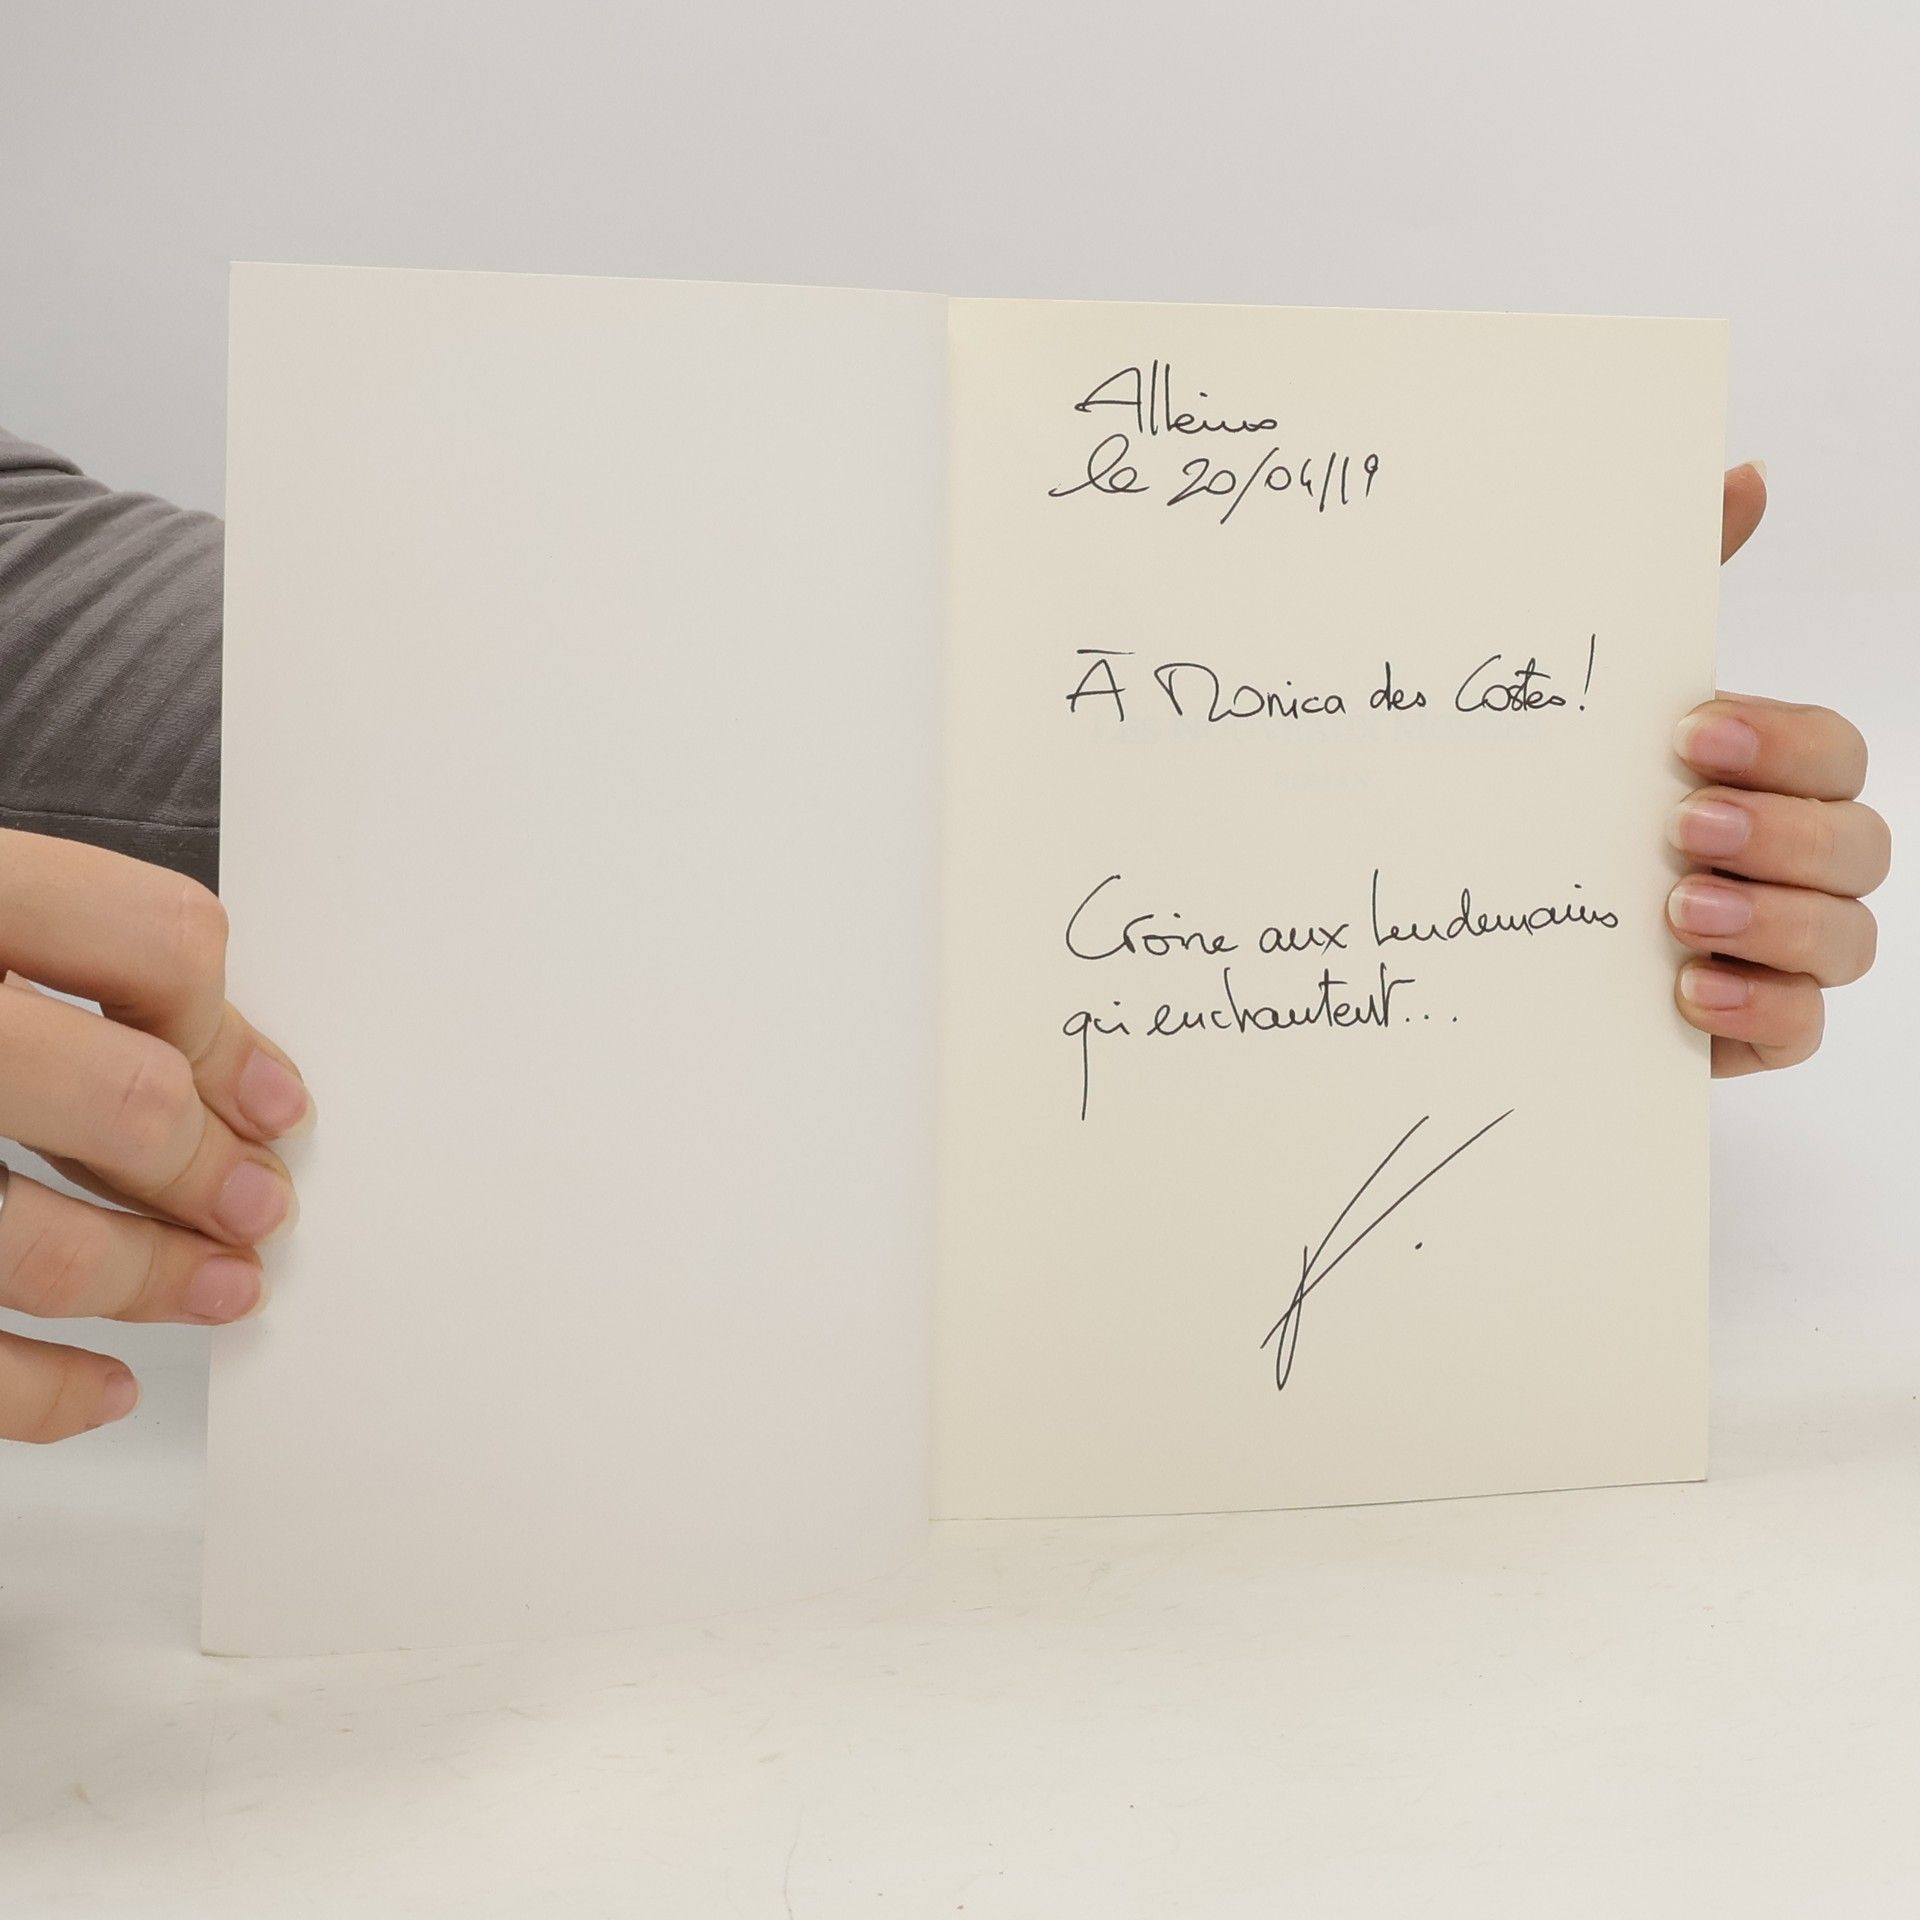 Alleins
le 20/04/19
À Monica des Costes!
Croire aux lendemains
qui enchantent...